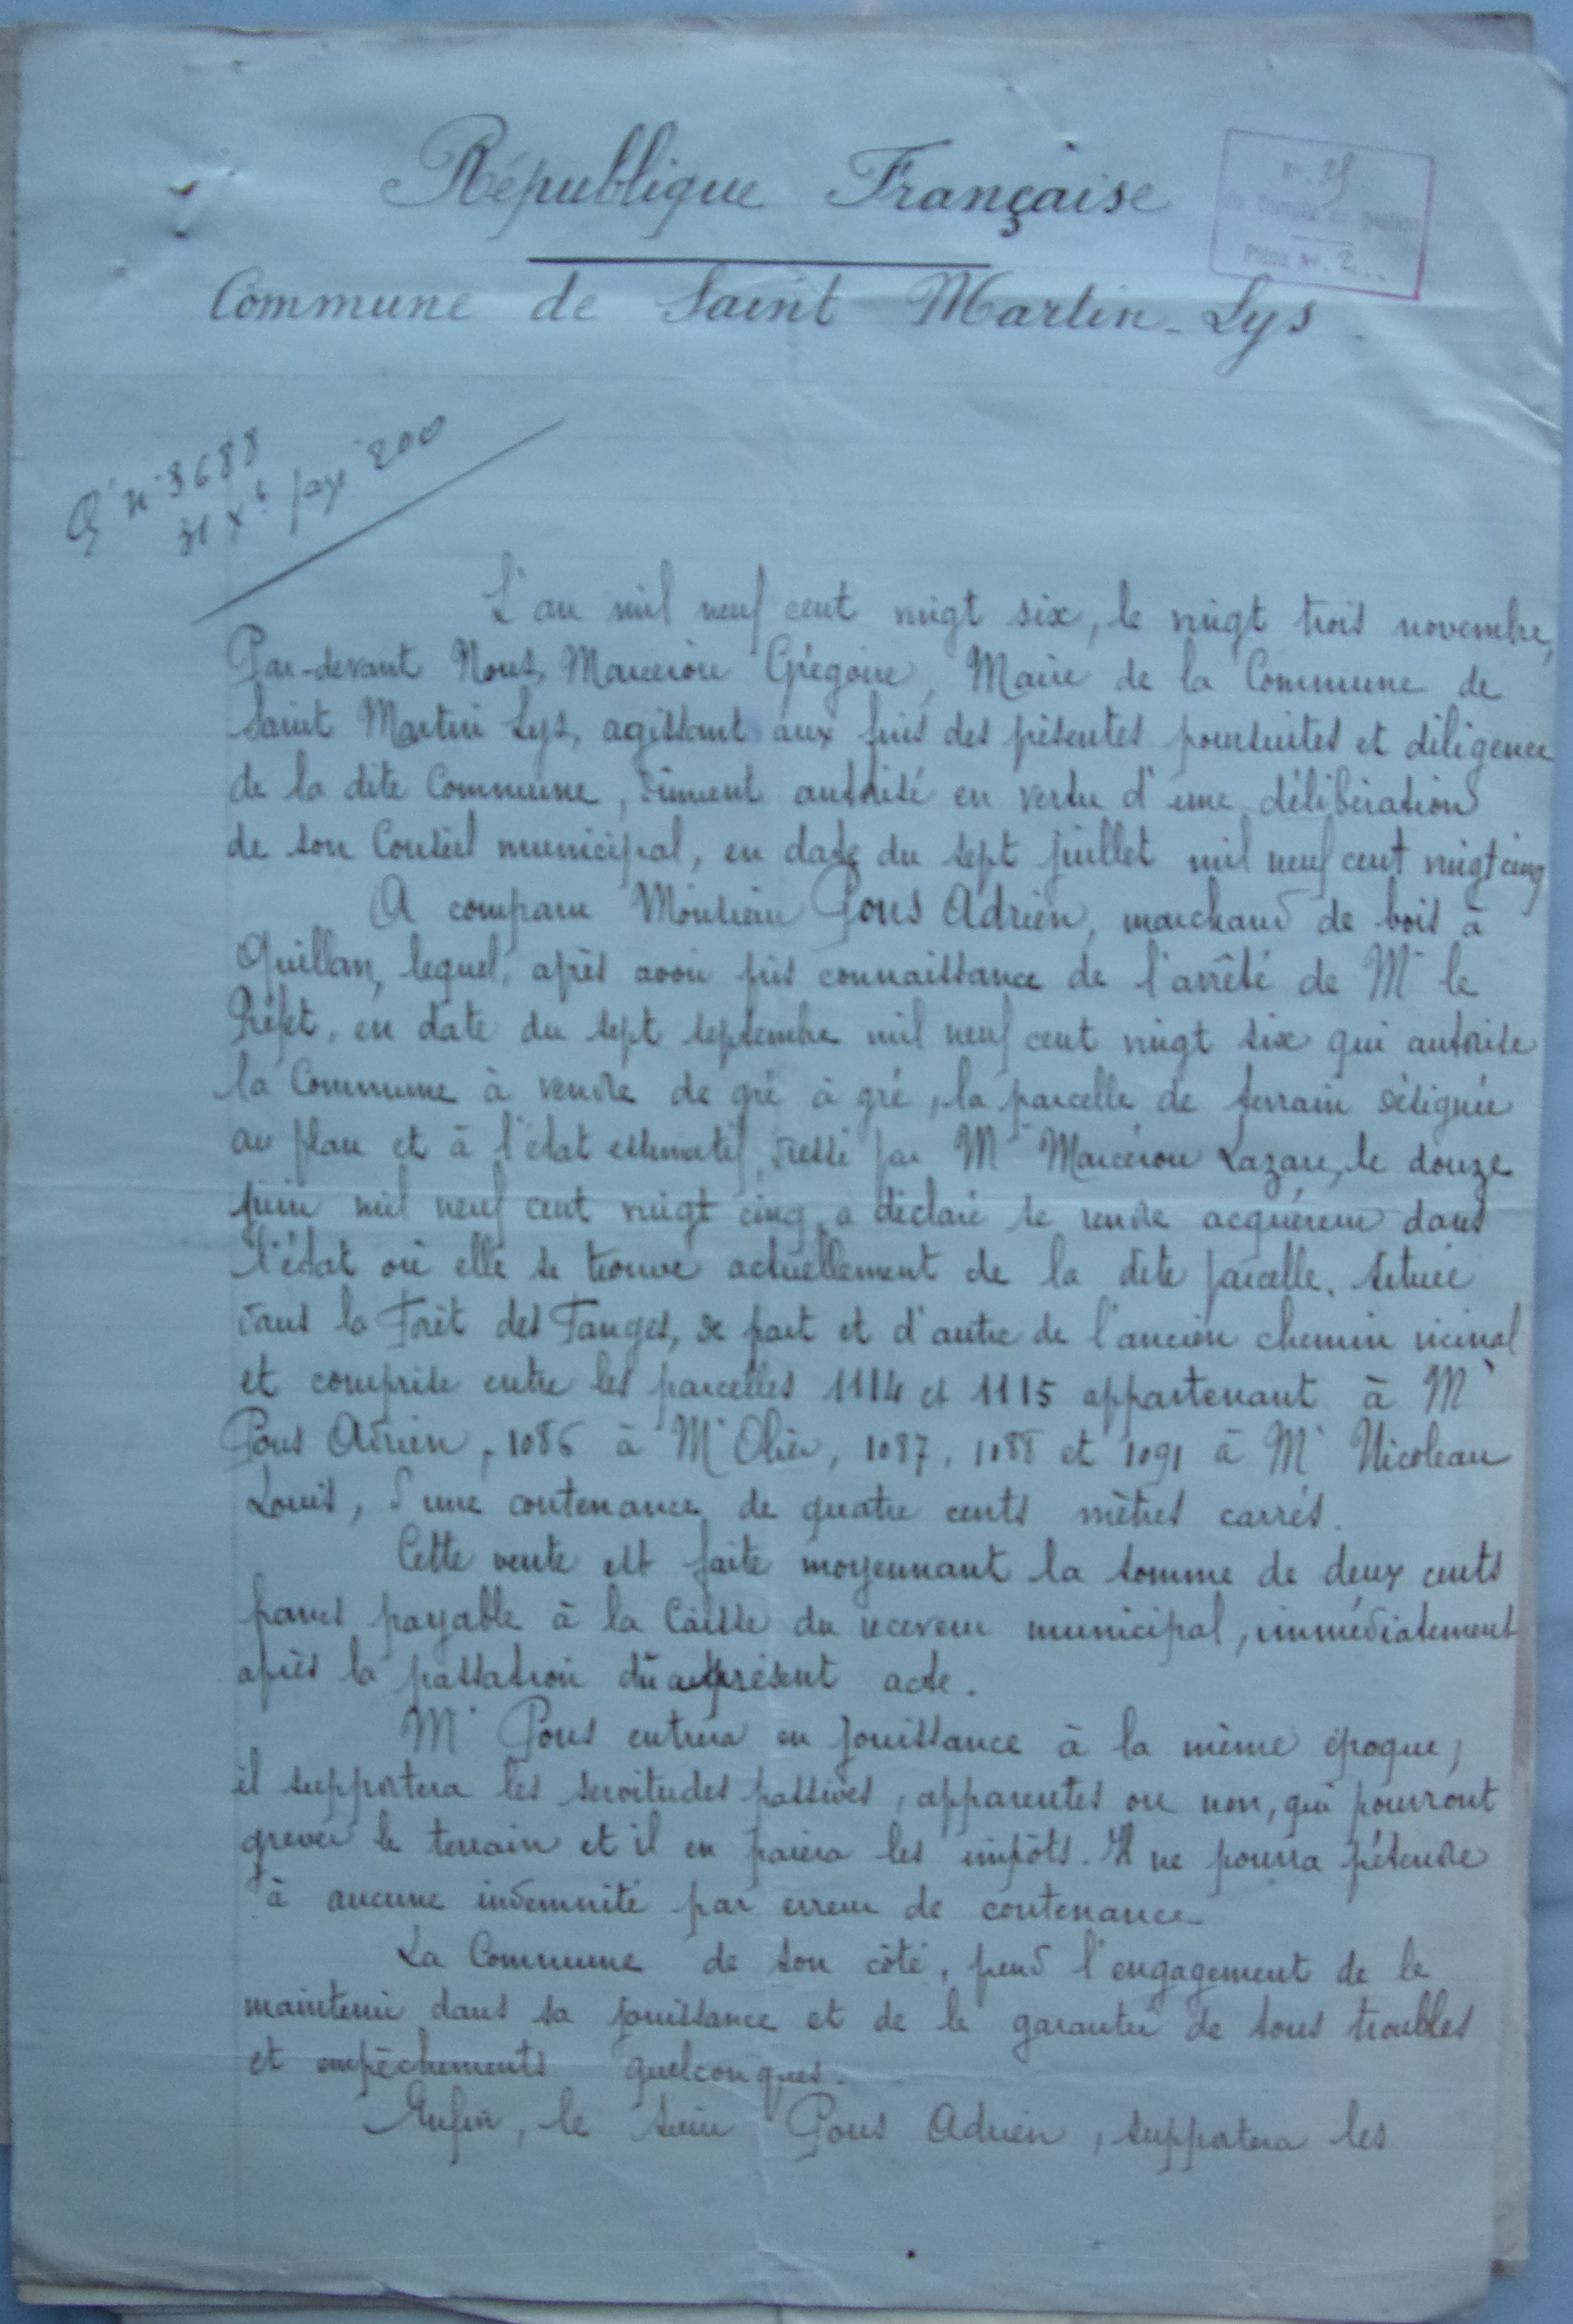 République Française
Nº. 25
du Compte de gestion
Pièce Nº. 2...
Commune de Saint Martin-Lys
Q. nº 3688
31 Xbre payé 200
L'an mil neuf cent vingt six, le vingt trois novembre,
Par-devant Nous, Marcerou Grégoire, Maire de la Commune de
Saint Martin Lys, agissant aux fins des présentes poursuites et diligence
de la dite Commune, dûment autorisé en vertu d'une délibération
de son Conseil municipal, en date du sept juillet mil neuf cent vingt cinq
A comparu Monsieur Pous Adrien, marchand de bois à
Quillan, lequel, après avoir pris connaissance de l'arrêté de Mr le
Préfet, en date du sept septembre mil neuf cent vingt six qui autorise
la Commune à vendre de gré à gré, la parcelle de terrain désignée
au plan et à l'état estimatif, dressé par Mr Marcérou Lazare, le douze
juin mil neuf cent vingt cinq, a déclaré se rendre acquéreur dans
l'état où elle se trouve actuellement de la dite parcelle, située
dans la Forêt des Fanges, de part et d'autre de l'ancien chemin vicinal
et comprise entre les parcelles 1114 et 1115 appartenant à Mr
Pous Adrien, 1086 à Mr Olier, 1087, 1088 et 1091 à Mr Nicoleau
Louis, d'une contenance de quatre cents mètres carrés.
Cette vente est faite moyennant la somme de deux cents
francs payable à la Caisse du receveur municipal, immédiatement
après la passation du présent acte.
Mr Pous entrera en jouissance à la même époque,
il supportera les servitudes passives, apparentes ou non, qui pourront
grever le terrain et il en paiera les impôts. Il ne pourra prétendre
à aucune indemnité par erreur de contenance
La Commune de son côté, prend l'engagement de le
maintenir dans sa jouissance et de le garantir de tous troubles
et empêchements quelconques.
Enfin, le sieur Pous Adrien, supportera les